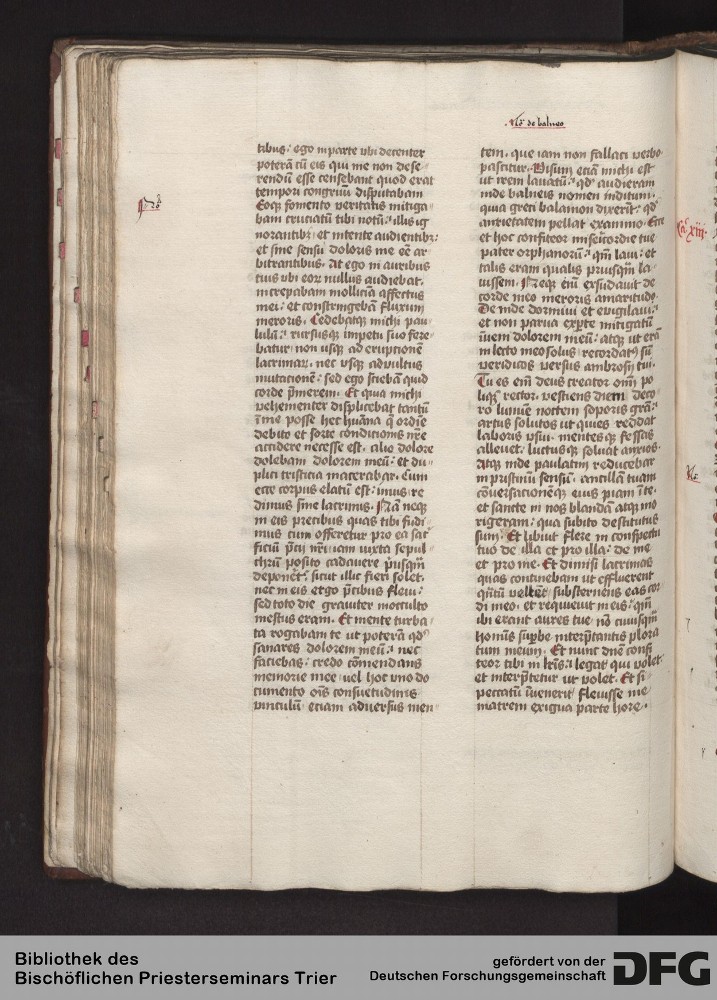 No͞ de balneo
tibus: ego in parte vbi decenter
poterā cū eis qui me non dese-
rendū esse censebant quod erat
tempori congruū disputabam
Eoq; fomento veritatis mitiga-
bam cruciatū tibi notū: illis ig-
norantibꝫ: et intente audientibꝫ:
et sine sensu doloris me eē ar-
bitrantibus. At ego in auribus
tuis vbi eoꝝ nullus audiebat.
increpabam molliciā affectus
mei: et constringebā fluxum
meroris. Cedebatq; michi pau-
lulū: rursusq; impetu suo fere-
batur. non vsq; ad eruptionē
lacrimaꝝ. nec vsq; ad vultus
mutacionē: sed ego sciebā quid
corde p̄merem. Et quia michi
vehementer displicebat tantū
in me posse hec hūana q̄ ordīe
debito et sorte conditionis nr̄e
accidere necesse est. alio dolore
dolebam dolorem meū: et du-
plici tristicia macerabar. Cum
ecce corpus elatū est: imus re-
dimus sine lacrimis. Nā neq;
in eis precibus quas tibi fudi-
mus cum offerretur pro ea sac̄-
ficiū p̄cii nr̄i iam iuxta sepul-
chrū posito cadauere p̄usqm̄
deponer̄t: sicut illic fieri solet.
nec in eis ergo p̄cibus fleui:
sed toto die grauiter in occulto
mestus eram. Et mente turba-
ta rogabam te ut poterā qd̄
sanares dolorem meū: nec
faciebas: credo cōmendans
memorie mee vel hoc vno do-
cumento oīs consuetudinis
vinculū: etiam aduersus men-
tem. que iam non fallaci verbo
pascitur. Visum etiā michi est
ut irem lauatū: qd̄ audieram
inde balneis nomen inditum.
quia greci balanion dixerīt: qd̄
anxietatem pellat ex animo. Ecce
et hoc confiteor mis̄cordie tue
pater orphanorū: qm̄ laui: et
talis eram qualis priusqm̄ la-
uissem. Neq; eni exsudauit de
corde meo meroris amaritudo.
De inde dormiui et euigilaui:
et non parua ex pte mitigatū
inueni dolorem meū: atq; ut erā
in lecto meo solus recordatꝰ sū
veridicos versus ambrosij tui.
Tu es em̄ deus creator om̄ po-
liq; rector. vestiens diem deco-
ro lumine noctem soporis grā:
artus solutos ut quies reddat
laboris vsui. mentesq; fessas
alleuet. luctusq; soluat anxios.
Atq; inde paulatim reducebar
in pristinū sensū. ancillā tuam
cōuersacionēq; eius piam in te.
et sancte in nos blandā atq; mo-
rigeram: qua subito destitutus
sum. Et libuit flere in conspectu
tuo de illa et pro illa: de me
et pro me. Et dimisi lacrimas
quas continebam ut effluerent
qn̄tū vellēt: substernens eas cor-
di meo. et requieuit in eis: qm̄
ibi erant aures tue. nō cuiusqm̄
hominis supbe interp̄tantis plora-
tum meum. Et nunc dn̄e confi-
teor tibi in lr̄is: legat qui volet.
et interp̄tetur ut volet. Et si
peccatū inuenerit fleuisse me
matrem exigua parte hore.
Ca. xiij.
Bibliothek des
Bischöflichen Priesterseminars Trier
gefördert von der
Deutschen Forschungsgemeinschaft
DFG